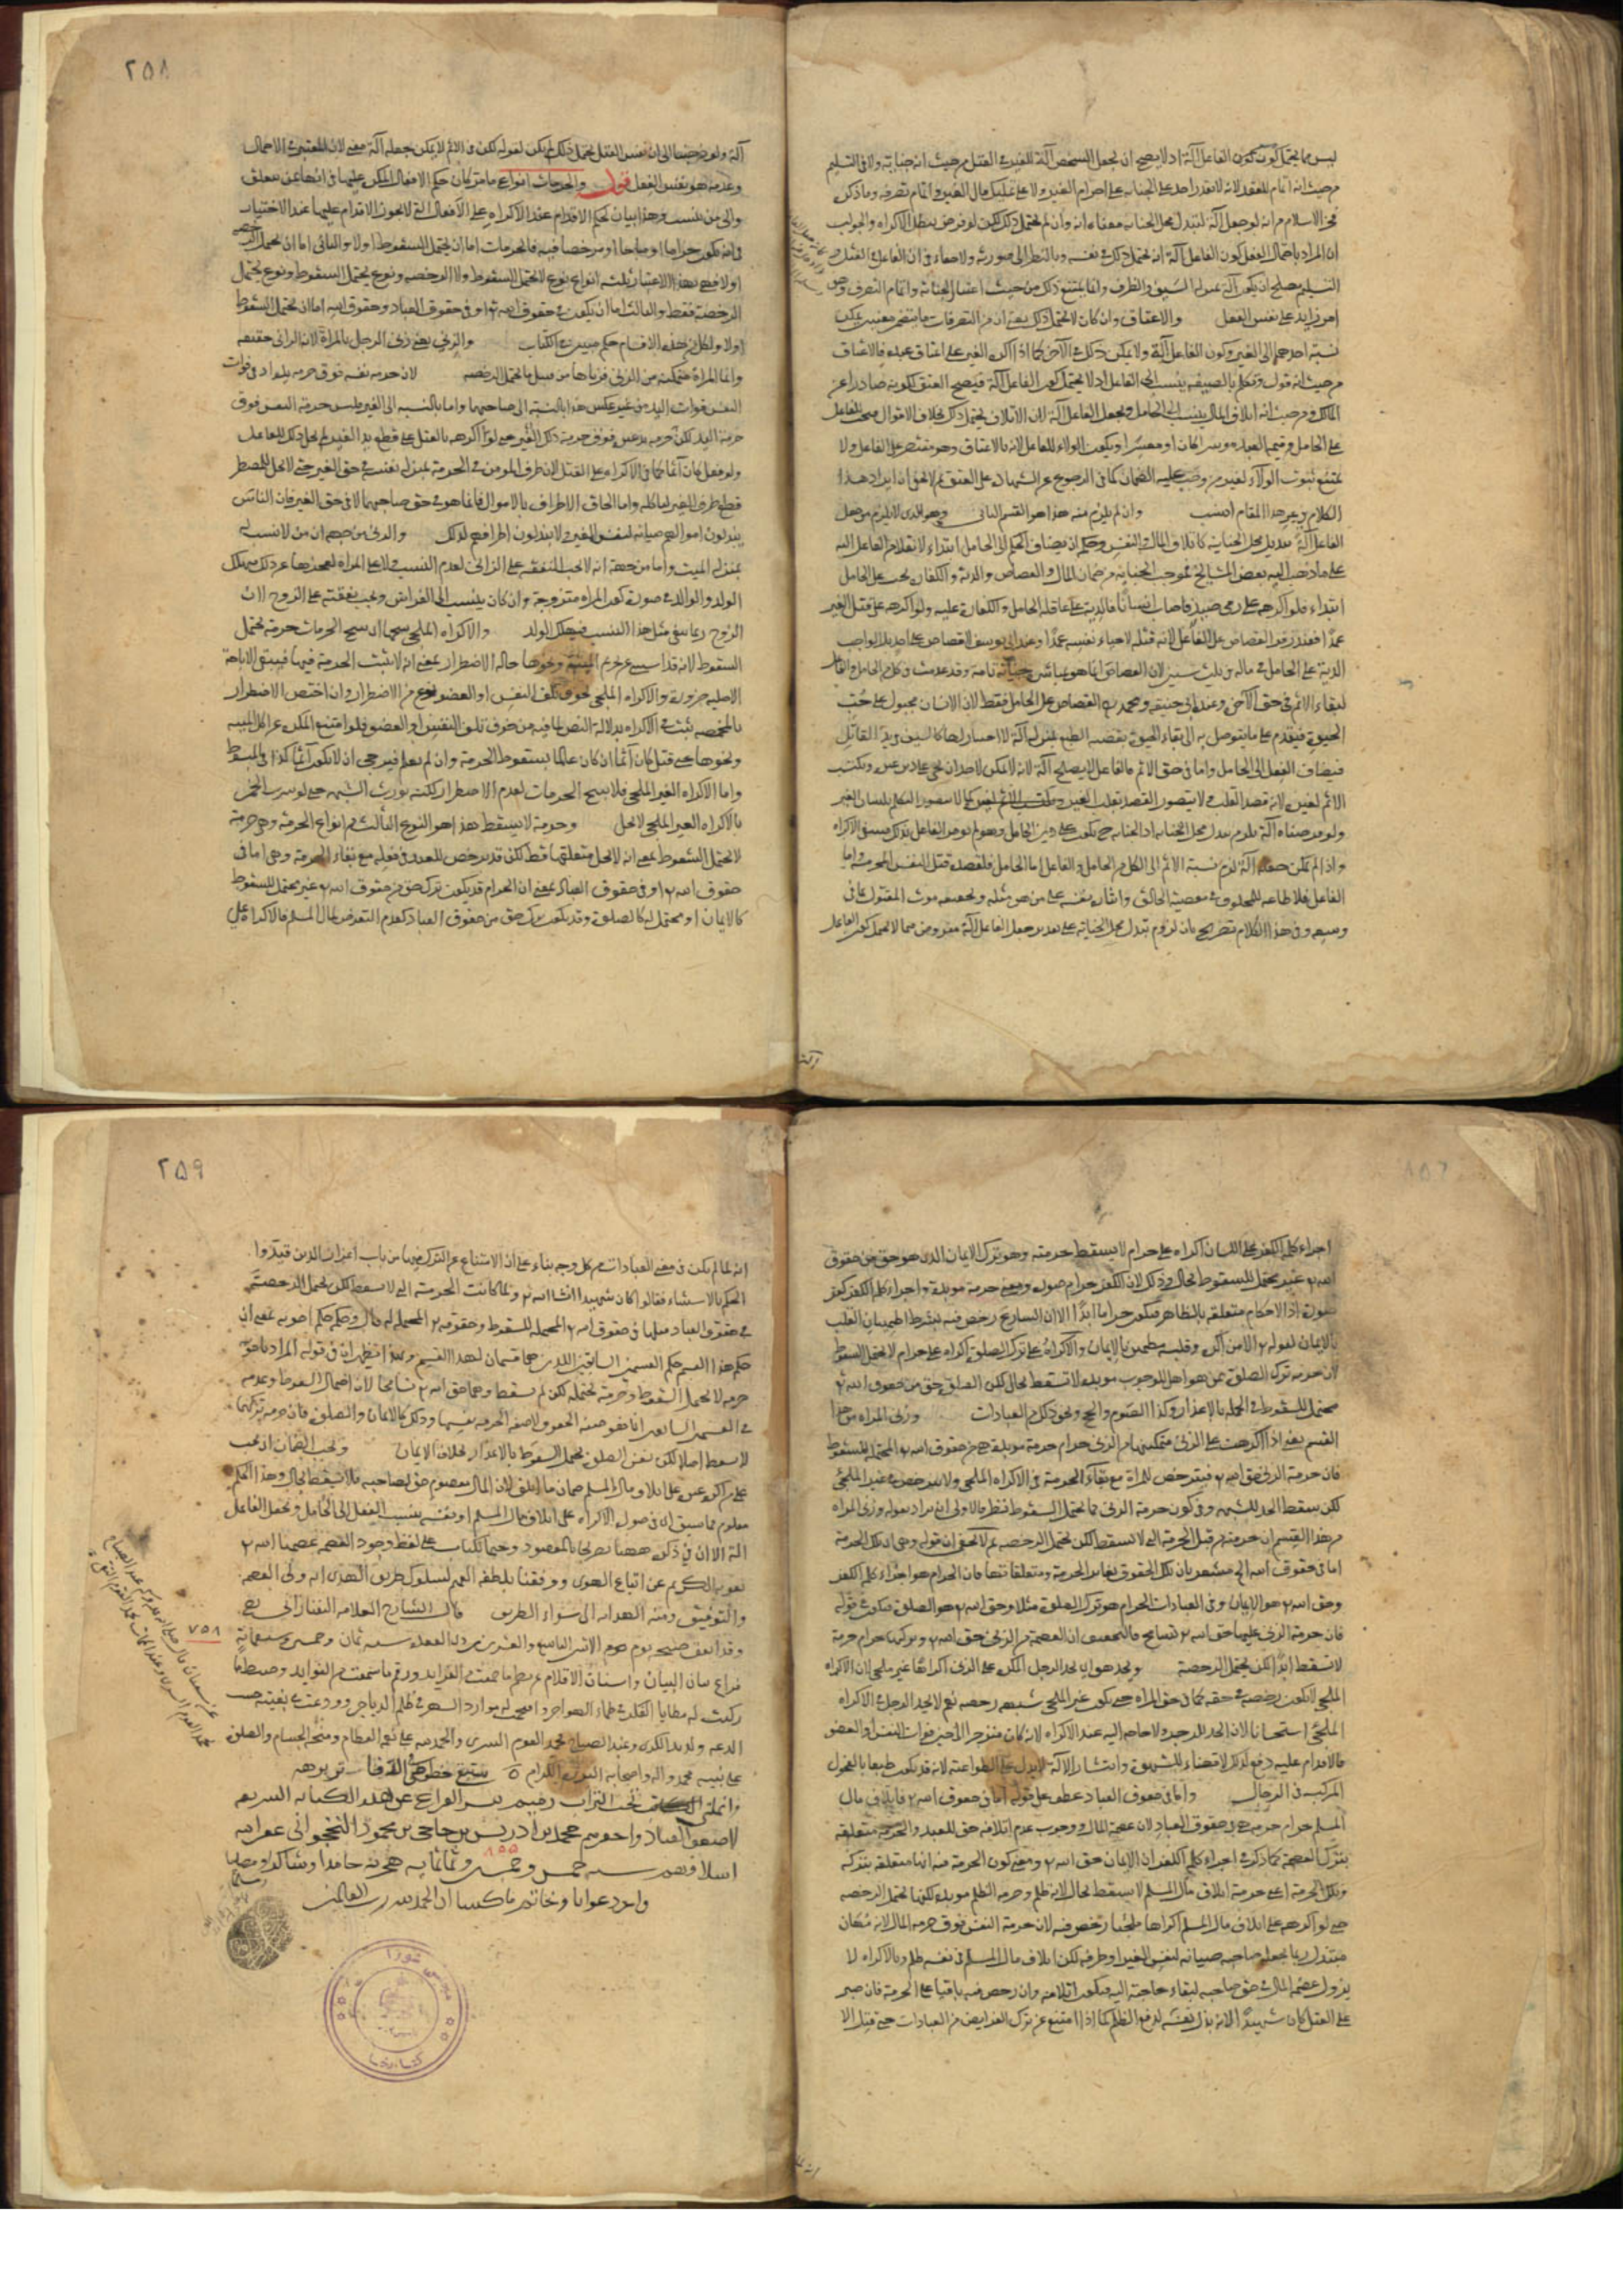 ليس مما يحتمل كون الفاعل آلة اذ لا يصح ان يجعل الشخص آلة للغير في القتل من حيث انه جناية ولا في التسليم
من حيث انه اتمام للعقد لانه لا يقدر احد على الجناية على احرام الغير ولا على تمليك مال الغير واتمام تصرفه وما ذكره
فخر الاسلام من انه لو جعل آلة لتبدل محل الجناية معناه انه وان لم يحتمل ذلك لكن لو فرض يبطل الاكراه والجواب
ان المراد باحتمال الفعل كون الفاعل آلة انه يحتمل ذلك في نفسه وبالنظر الى صورته ولا خفاء في ان الفاعل في القتل و
التسليم يصلح ان يكون آلة بمنزلة السيف والظرف وانما يمتنع ذلك من حيث اعتبار الجناية واتمام التصرف وهو
امر زايد على نفس الفعل والاعتاق وان كان لا يحتمل ذلك يعني ان من التصرفات ما يتضمن معنيين يمكن
نسبة احدهما الى الغير وكون الفاعل آلة ولا يمكن ذلك في الآخر كما اذا اكره الغير على اعتاق عبده فالاعتاق
من حيث انه قول وتكلم بالصيغة ينسب الى الفاعل اذ لا يحتمل كون الفاعل آلة فيصح العتق لكونه صادرا عن
المالك ومن حيث انه اتلاف المال ينسب الى الحامل ويجعل الفاعل آلة لان الاتلاف يحتمل ذلك بخلاف الاقوال فيضمن للفاعل
على الحامل قيمة العبد موسرا كان او معسرا ويكون الولاء للفاعل لانه بالاعتاق وهو مقتصر على الفاعل ولا
يمتنع ثبوت الولاء لغير من وجب عليه الضمان كما في الرجوع عن الشهادة على العتق ثم لا يخفى ان ايراد هذا
الكلام في غير هذا المقام انسب وان لم يلزم منه هذا هو القسم الثاني وهو الذي لا يلزم من جعل
الفاعل آلة تبديل محل الجناية كاتلاف المال والنفس وحكمه ان يضاف الحكم الى الحامل ابتداء لا نقلا من الفاعل اليه
على ما ذهب اليه بعض المشايخ فموجب الجناية من ضمان المال والقصاص والدية والكفارة يجب على الحامل
ابتداء فلو اكرهه على رمي صيد فاصاب انسانا فالدية على عاقلة الحامل والكفارة عليه ولو اكرهه على قتل الغير
عمدا فعند زفر القصاص على الفاعل لانه قتله لاحياء نفسه عمدا وعند ابي يوسف لا قصاص على احد بل الواجب
الدية على الحامل في ماله في ثلث سنين لان القصاص انما هو بمباشرة جناية تامة وقد عدمت في كل من الحامل والفاعل
لبقاء الاثم في حق الآخر وعند ابي حنيفة ومحمد القصاص على الحامل فقط لان الانسان مجبول على حب
الحيوة فيقدم على ما يتوصل به الى بقاء الحيوة بقضية الطبع بمنزلة آلة لا اختيار لها كالسيف في يد القاتل
فيضاف الفعل الى الحامل واما في حق الاثم فالفاعل لا يصلح آلة لانه لا يمكن لاحد ان يجني على دين غيره ويكتسب
الاثم لغيره لانه قصد القلب ولا يتصور القصد بقلب الغير كما لا يتصور التكلم بلسان الغير
ولو فرضناه آلة يلزم تبدل محل الجناية اذ الجناية ح يكون على دين الحامل وهو لم يأمر الفاعل بذلك فينتفي الاكراه
واذا لم يمكن جعله آلة لزم نسبة الاثم الى كل من الحامل والفاعل اما الحامل فلقصده قتل النفس المحرمة واما
الفاعل فلاطاعة المخلوق في معصية الخالق وايثاره نفسه على من هو مثله وتحقيقه موت المقتول بما في
وسعه وفي هذا الكلام تصريح بان لزوم تبدل محل الجناية على تقدير جعل الفاعل آلة مفروض مما لا يحتمل كون الفاعل
آلة
٢٥٨
آلة ولو فرضنا الى ان نفس القتل يحتمل ذلك لم يكن لقوله لكن في الاثم لا يمكن جعله آلة معنى لان المعتبر في الاحتمال
وعدمه هو نفس الفعل قوله والحرمات انواع ما مر كان حكم الافعال المكره عليها في انها عمن يتعلق
والى من ينسب وهذا بيان لحكم الاقدام عند الاكراه على الافعال التي لا يجوز الاقدام عليها عند الاختيار
في انه يكون حراما او مباحا او مرخصا فيه فالحرمات اما ان يحتمل السقوط اولا والثاني اما ان يحتمل الرخصة
اولا فهي بهذا الاعتبار ثلثة انواع نوع لا يحتمل السقوط ولا الرخصة ونوع يحتمل السقوط ونوع يحتمل
الرخصة فقط والثالث اما ان يكون في حقوق الله تع او في حقوق العباد وحقوق الله اما ان يحتمل السقوط
اولا ولكل من هذه الاقسام حكم مبين في الكتاب والزنى يعني زنى الرجل بالمرأة لانه الزاني حقيقة
وانما المرأة متمكنة من الزنى فزناها من قبيل ما يحتمل الرخصة لان حرمة نفسه فوق حرمة يده اذ في فوات
النفس فوات اليد من غير عكس هذا بالنسبة الى صاحبهما واما بالنسبة الى الغير فليس حرمة النفس فوق
حرمة اليد لكن حرمة يد غيره فوق حرمة ذلك الغير حتى لو اكرهه بالقتل على قطع يد الغير لم يحل ذلك للفاعل
ولو فعل كان آثما كما في الاكراه على القتل لان طرف المؤمن في الحرمة بمنزلة نفسه في حق الغير حتى لا يحل للمضطر
قطع طرف الغير لياكله واما الحاق الاطراف بالاموال فانما هو في حق صاحبهما لا في حق الغير فان الناس
يبذلون اموالهم صيانة لنفس الغير ولا يبذلون اطرافهم لذلك والزنى من جهة ان من لا نسب له
بمنزلة الميت واما من جهة انه لا يجب النفقة على الزاني لعدم النسب ولا على المرأة لعجزها عن ذلك فيهلك
الولد والوالد في صورة كون المرأة متزوجة وان كان ينسب الى الفراش ويجب نفقته على الزوج الا ان
الزوج ربما ينفي مثل هذا النسب فيهلك الولد والاكراه الملجئ يبيحها اذ يبيح الحرمات حرمة يحتمل
السقوط لانه قد استثنى عن تحريم الميتة ونحوها حالة الاضطرار بمعنى انه لا يثبت الحرمة فيها فيبقى الاباحة
الاصلية ضرورة والاكراه الملجئ بخوف تلف النفس او العضو نوع من الاضطرار وان اختص الاضطرار
بالمخمصة يثبت في الاكراه بدلالة النص لما فيه من خوف تلف النفس او العضو فلو امتنع المكره عن اكل الميتة
ونحوها حتى قتل كان آثما ان كان عالما بسقوط الحرمة وان لم يعلم فيرجى ان لا يكون آثما كذا في المبسوط
واما الاكراه الغير الملجئ فلا يبيح الحرمات لعدم الاضطرار لكنه يورث الشبهة حتى لو شرب الخمر
بالاكراه الغير الملجئ لا يحد وحرمة لا يسقط هذا هو النوع الثالث من انواع الحرمة وهي حرمة
لا يحتمل السقوط بمعنى انه لا يحل متعلقها قط لكن قد يرخص للعبد في فعله مع بقاء الحرمة وهي اما في
حقوق الله تع او في حقوق العباد بمعنى ان الحرام قد يكون ترك حق من حقوق الله تع غير محتمل للسقوط
كالايمان او محتمل له كالصلوة وقد يكون ترك حق من حقوق العباد كعدم التعرض لمال المسلم فالاكراه على
اجراء كلمة الكفر على اللسان اكراه على حرام لا يسقط حرمته وهو ترك الايمان الذي هو حق من حقوق
الله تع غير محتمل للسقوط بحال وذلك لان الكفر حرام صورة ومعنى حرمة مؤبدة واجراء كلمة الكفر كفر
صورة اذ الاحكام متعلقة بالظاهر فيكون حراما ابدا الا ان الشارع رخص فيه بشرط اطمينان القلب
بالايمان لقوله تع الا من اكره وقلبه مطمئن بالايمان والاكراه على ترك الصلوة اكراه على حرام لا يحتمل السقوط
لان حرمة ترك الصلوة ممن هو اهل للوجوب مؤبدة لا تسقط بحال لكن الصلوة حق من حقوق الله تع
محتمل للسقوط في الجملة بالاعذار وكذا الصوم والحج ونحو ذلك من العبادات وزنى المرأة من هذا
القسم يعني اذا اكرهت على الزنى فتمكينها من الزنى حرام حرمة مؤبدة هي من حقوق الله تع المحتملة للسقوط
فان حرمة الزنى حق الله تع فيترخص للمرأة مع بقاء الحرمة في الاكراه الملجئ ولا يترخص في غير الملجئ
لكن يسقط الحد للشبهة وفي كون حرمة الزنى مما يحتمل السقوط نظر فالاولى ان يراد بقوله وزنى المرأة
من هذا القسم ان حرمته من قبيل الحرمة التي لا تسقط لكن يحتمل الرخصة ثم لا يخفى ان قوله وهي اي تلك الحرمة
اما في حقوق الله الخ مشعر بان تلك الحقوق يغاير الحرمة ومتعلقاتها فان الحرام هو اجراء كلمة الكفر
وحق الله تع هو الايمان وفي العبادات الحرام هو ترك الصلوة مثلا وحق الله تع هو الصلوة فيكون في قوله
فان حرمة الزنى عليها حق الله تع تسامح والتحقيق ان العصمة من الزنى حق الله تع وتركها حرام حرمة
لا تسقط ابدا لكن يحتمل الرخصة ويحد هو اي يحد الرجل المكره على الزنى اكراها غير ملجئ لان الاكراه
الملجئ لا يكون رخصة في حقه كما في حق المرأة حتى يكون غير الملجئ شبهة رخصة نعم لا يحد الرجل في الاكراه
الملجئ استحسانا لان الحد للزجر ولا حاجة اليه عند الاكراه لانه كان منزجرا الى حين فوات النفس او العضو
فالاقدام عليه دفع لذلك لا قضاء للشهوة وانتشار الآلة لا يدل على الطواعية لانه قد يكون طبعا بالفحولة
المركبة في الرجال واما في حقوق العباد عطف على قوله اما في حقوق الله تع فاتلاف مال
المسلم حرام حرمة هي في حقوق العباد لان عصمة المال ووجوب عدم اتلافه حق للعبد والحرمة متعلقة
بترك العصمة كما ذكر في اجراء كلمة الكفر ان الايمان حق الله تع ومعنى كون الحرمة فيه انها متعلقة بتركه
وتلك الحرمة اعني حرمة اتلاف مال المسلم لا يسقط بحال لانه ظلم وحرمة الظلم مؤبدة لكنها يحتمل الرخصة
حتى لو اكرهه على اتلاف مال المسلم اكراها ملجئا رخص فيه لان حرمة النفس فوق حرمة المال لانه مهان
مبتذل ربما يجعله صاحبه صيانة لنفس الغير او طرفه لكن اتلاف مال المسلم في نفسه ظلم وبالاكراه لا
يزول عصمة المال في حق صاحبه لبقاء حاجته اليه فيكون اتلافه وان رخص فيه باقيا على الحرمة فان صبر
على القتل كان شهيدا لانه بذل نفسه لدفع الظلم كما اذا امتنع عن ترك الفرايض من العبادات حتى قتل الا
انه لما
٢٥٩
انه لما لم يكن في معنى العبادات من كل وجه بناء على ان الامتناع عن الترك فيها من باب اعزاز الدين قيدوا
الحكم بالاستثناء فقالوا كان شهيدا انشا الله تع ولما كانت الحرمة التي لا تسقط لكن يحتمل الرخصة
في حقوق العباد مثلها في حقوق الله تع المحتملة للسقوط وحقوقه تع المحتملة له قال وحكمه حكم اخويه بمعنى ان
حكم هذا القسم حكم القسمين السابقين اللذين هما قسمان لهذا القسم وبهذا يظهر ان في قوله المراد باخويه
حرمة لا يحتمل السقوط وحرمة يحتمله لكن لم يسقط وهما حق الله تع تسامحا لان احتمال السقوط وعدمه
في القسمين السابقين انما هو صفة الحقوق لا صفة الحرمة نفسها وذلك كالايمان والصلوة فان حرمة تركهما
لا يسقط اصلا لكن نفس الصلوة يحتمل السقوط بالاعذار بخلاف الايمان ويجب الضمان اذ يجب
على من اكره غيره على اتلاف مال المسلم ضمان ما اتلف لان المال معصوم حق لصاحبه فلا يسقط بحال وهذا الحكم
معلوم مما سبق ان في صورة الاكراه على اتلاف مال المسلم او نفسه ينسب الفعل الى الحامل ويجعل الفاعل
آلة الا ان في ذكره ههنا تصريحا بالمقصود وختما للكتاب على لفظ وجود العصمة عصمنا الله تع
بعونه الكريم عن اتباع الهوى ووفقنا بلطفه العميم لسلوك طريق الهدى انه ولي العصمة
والتوفيق ومنه الهداية الى سواء الطريق قال الشارح العلامة التفتازاني
وقد اتفق صبيحة يوم الاثنين التاسع والعشرين من ذي القعدة سنة ثمان وخمسين وسبعمائة
٧٥٨
فراغ بنان البيان واسنان الاقلام عن نظم ما جمعت من الفرايد ورقم ما سمعت من الفوايد وضبط ما
ركبت له مطايا الفكر في ظماء الهواجر وانتجعت له موارد السهر في ظلم الدياجر وودعت في بغيته
الدعة ولذيذ الكرى وعند الصباح يحمد القوم السرى والحمد لله على نعمه العظام ومنحه الجسام والصلوة
على نبيه محمد واله واصحابه البررة الكرام
تحت التراب رميم الفراغ عن هذه الكتابة الشريفة
لاضعف العباد واحقرهم محمد بن ادريس بن حاجي بن محمود النخجواني غفر الله
اسلافهم سنه خمس وخمسين وثمانمايه هجرية حامدا وشاكرا ومصليا
٨٥٥
واخر دعوانا ان الحمد لله رب العالمين